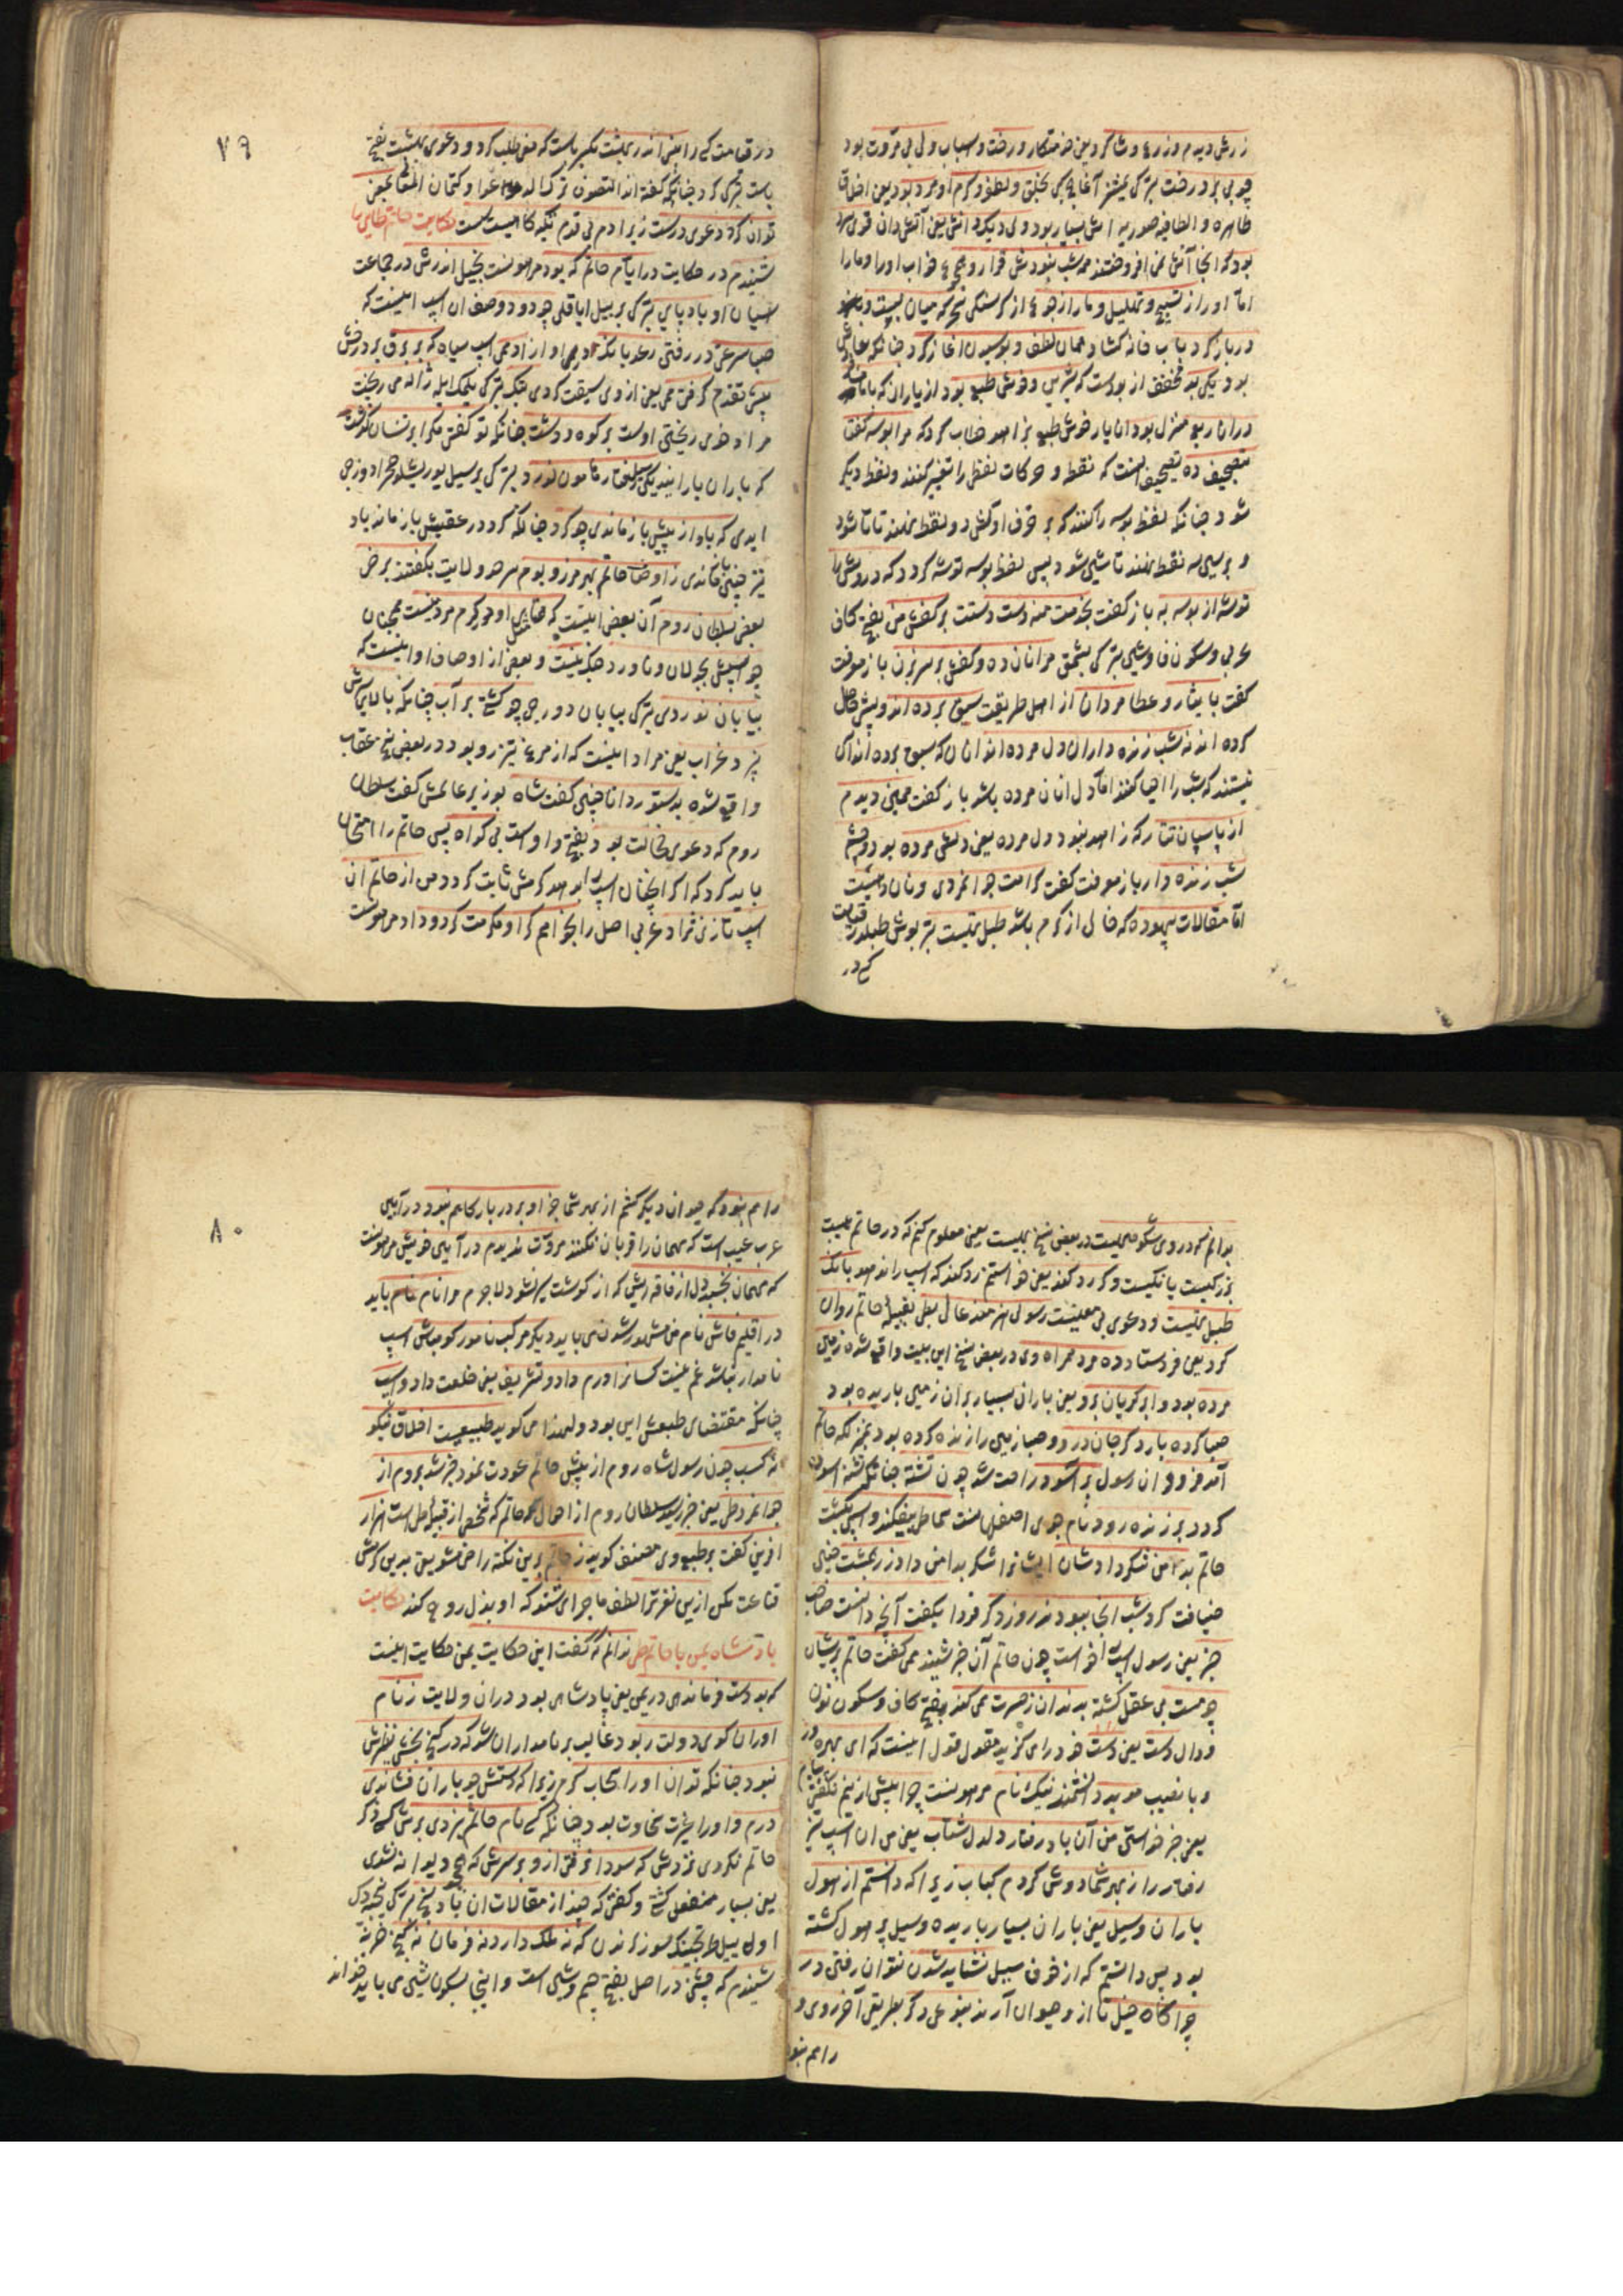 زرش دیدم و زرع و شاکرد یعنی خدمتکار و رخت و اسباب ولی بی مروت بود
چو بی بر درخت بترکی یمشسز آغاج کبی بخلق و لطف و کرم او مرد بود یعنی اخلاق
ظاهره و الطاف صوریه اش بسیار بود ولی دیکدانش یعنی آتش دان قوی سرد
بود که انجا آتش نمی افروختند همه شب نبودش قرار و هجوع خواب او را و ما را
اما او را از تسبیح و تهلیل و ما را از جوع از کرسنکی سحرکه میان بست و
در باز کرد باب خانه کشاد همان لطف و بوسیدن اغاز کرد چنانکه
بود یکی بد مخفف از بودست که شیرین و خوش طبع بود از یاران که با ما
دران ربع منزل بود ان یار خوش طبع بزاهد خطاب کرد که مرا بوسه کفتا
بتصحیف ده تصحیف انست که نقطه و حرکات لفظ را تغییر کنند و لفظ دیکر
شود چنانکه لفظ بوسه را کنند که بر حرف اولش دو نقطه نهند تا تا شود
و بر سین سه نقطه نهند تا شین شود پس لفظ بوسه توشه کردد که درویش را
توشه از بوسه به باز کفت بخدمت منه دست دستت بر کفش من بفتح کاف
عربی و سکون فا و شین بترکی بشمق مرا نان ده و کفش بر سر بزن باز معرفت
کفت بایثار و عطا مردان از اهل طریقت سبق برده اند و پیش حاصل
کرده اند نه شب زنده داران دل مرده اند انان که سبق برده اند آن
نیستند که شب را احیا کنند اما دل انان مرده باشد باز کفت همین دیدم
از پاسبان تتار که زاهد نبود دل مرده یعنی دلش مرده بود و چشم
شب زنده دار باز معرفت کفت کرامت جوانمردی و نان دهیست
اما مقالات بیهوده که خالی از کرم باشد طبل تهیست بتر بوش طبلدر قیامت
کسی در
۷۹
در قیامت کسی را بینی اندر بهشت یکسر باست که معنی طلب کرد و دعوی بهشت بفتح
باست ترک کرد چنانکه کفته اند التصوف ترک الدعوی و کتمان المعانی بمعنی
توان کرد دعوی درست زیرا دم بی قدم تکیه کاهیست سست حکایت حاتم طایی را
شنیدم در حکایت در ایام حاتم که بود مرهونست بخیل اندرش در جماعت
اسپان او باد پای بترکی یر بیل ایاقلی چو دود وصف ان اسپ اینست که
صبا سرعتی در رفتن رعد بانک ادهمی او از ادهمی اسپ سیاه که بر برق بر درخش
پیشی تقدم کرفتی همی یعنی از وی سبقت کردی بتک بترکی یلمک ایله ژاله می ریخت
مراد خوی ریختن اوست بر کوه و دشت چنانکه تو کفتی مکر ابر نسیان کذشت
که باران بارانید یکی سیل رفتار هامون نورد بترکی بر سیل یوریشلو صحرا دوزجی
ایدی که باد از پیش باز ماندی چو کرد چنانکه کرد در عقبش باز ماند باد
نیز چنین ماندی ز اوصاف حاتم بهر مرز و بوم سر هر ولایت بکفتند برخی
بعضی بسلطان روم آن بعضی اینست که همتای او در کرم مرد نیست همچنان
چو اسپش بجولان و ناورد جنک نیست و بعضی از اوصاف او اینست که
بیابان نوردی بترکی بیابان دوریجی چو کشتی بر آب چنانکه بالای سرش
پرد غراب یعنی مراد اینست که از مرغ تیزرو بود و در بعض نسخ عقاب
واقع شده بدستور دانا چنین کفت شاه بوزیر عالمش کفت سلطان
روم که دعوی خجالت بود بفتح و اوست بی کواه پس حاتم را امتحان
باید کرد که اکر انچنان اسپ بدهد کرمش ثابت کردد من از حاتم ان
اسپ تازی نژاد عربی اصل را بخواهم کر او مکرمت کرد و داد مرهونست
بدانم که در وی شکوه مهیست در بعض نسخ بهیست یعنی معلوم کنم که در حاتم هیبت
بزرکیست یا نیکیست و کر رد کند یعنی خواستم رد کند که اسپ را ندهد بانک
طبل تهیست و دعوی بی معنیست رسول هنرمند عالم بطی بقبیله حاتم روان
کرد یعنی فرستاد ده مرد همراه وی در بعض نسخ این بیت واقع شده زمین
مرده بود و ابر کریان برو یعنی باران بسیار بر ان زمین باریده بود
صبا کرده بار دکر جان درو و صبا زمین را زنده کرده بود بمنزلکه حاتم
آمد فرود ان رسول بر آسود راحت شد چون تشنه چنانکه تشنه اسوده
کردد بر زنده رود نام جوی اصفهانست سماطی بیفکند و اسپی بکشت
حاتم بدامن شکر دادشان ایشانرا شکر بدامن داد زر بمشت چنین
ضیافت کرد شب انجا ببودند روز دکر فردا بکفت آنچه دانست صاحب
خبر یعنی رسول اسپ را خواست چون حاتم آن خبر شنید همی کفت حاتم پریشان
چو مست بی عقل کشته بدندان ز حسرت همی کند بفتح کاف و سکون نون
و دال دست یعنی دست خود را می کزید مقول قول اینست که ای بهره ور
و با نصیب موبد دانشمند نیک نام مرهونست چرا پیش ازینم نکفتی پیام
یعنی خبر خواستن من آن باد رفتار دلدل شتاب یعنی من ان اسپ تیز
رفتار را ز بهر شما دوش کردم کباب زیرا که دانستم از هول
باران و سیل یعنی باران بسیار باریده و سیل پر هول کشته
بود پس دانستم که از خوف سیل نشاید شدن نتوان رفتن در
چراکاه خیل تا از وحیوان آرند بنوعی دکر بطریقی آخر روی و
راهم نبود
۸۰
راهم نبود که حیوان دیکر کشم از بهر شما جز او بر در بارکاهم نبود در آیین
عرب عیب است که مهمان را قربان نکنند مروت ندیدم در آیین خویش مرهونست
که مهمان بخسبد دل از فاقه ریش که از کوشت سیر نشود لاجرم مرا نام نام باید
در اقلیم فاش نام من مشهور شدن می باید دیکر مرکب نامور کو مباش اسپ
نامدار نباشد غم نیست کسانرا درم داد و تشریف یعنی خلعت داد و اسپ
چنانکه مقتضای طبعش این بود و لهذا می کوید طبیعیست اخلاق نیکو
نه کسب چون رسول شاه روم از پیش حاتم عودت نمود خبر شد بروم از
جوانمرد طی یعنی خبر رسید سلطان روم از احوال حاتم که شخصی از قبیله طی است هزار
افرین کفت بر طبع وی مصنف کوید ز حاتم برین نکته راضی مشو یعنی بدین کرمش
قناعت مکن ازین نغزتر الطف ماجرای شنو که او بذل روح کند حکایت
پادشاه یمن با حاتم طی ندانم که کفت این حکایت بمن حکایت اینست
که بودست فرماندهی در یمن یعنی پادشاهی بود در ان ولایت ز نام
اوران کوی دولت ربود غالب بر نامداران شد که در کنج بخشی نظیرش
نبود چنانکه توان او را سحاب کرم زیرا که دستش چو باران فشاندی
درم و او را غیرت سخاوت بود چنانکه کسی نام حاتم نبردی برش کسی ذکر
حاتم نکردی نزدش که سودا نرفتی ازو بر سرش که هیچ دیوانه نشدی
یعنی بسیار منفعل کشتی و کفتی که چند از مقالات ان باد سنج بترکی نیجه دک
اول ییل طرتیجینک سوزلرندن که نه ملک دارد نه فرمان نه کنج خزینه
شنیدم که جشنی در اصل بفتح جیم و شین است و اینجا بسکون شین می باید خواند